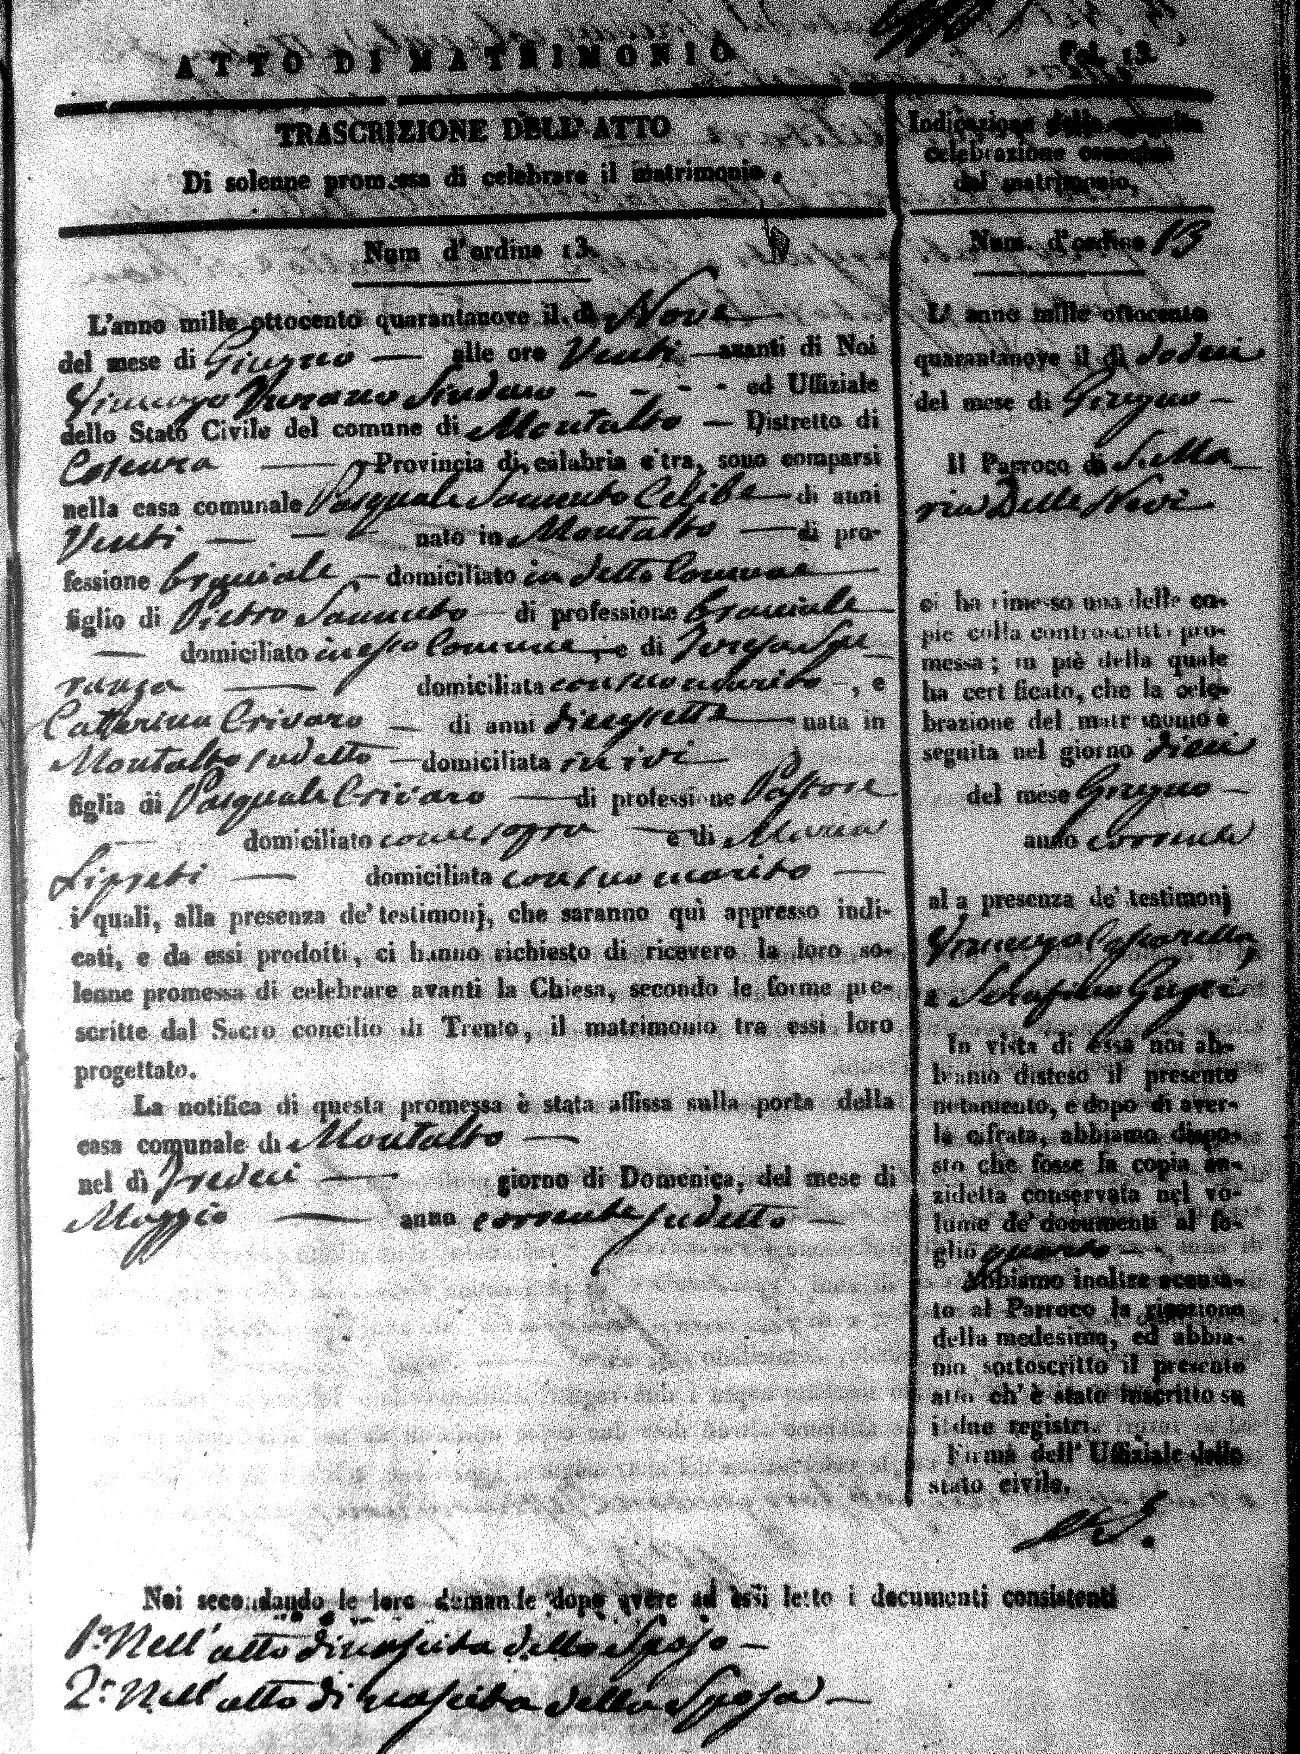 ATTO DI MATRIMONIO
Fol. 13.
TRASCRIZIONE DELL' ATTO
Di solenne promessa di celebrare il matrimonio.
Num d'ordine 13.
L'anno mille ottocento quarantanove il dì Nove
del mese di Giugno — alle ore Venti — avanti di Noi
Vincenzo Sindaco — - - - ed Uffiziale
dello Stato Civile del comune di Montalto — Distretto di
Cosenza — Provincia di calabria c'tra, sono comparsi
nella casa comunale Pasquale Sannuto Celibe — di anni
Venti — — nato in Montalto — di pro-
fessione braciale — domiciliato in detto Comune —
figlio di Pietro Sannuto — di professione braciale —
— domiciliato in esso Comune, e di Teresa Spe
ranza — domiciliata con suo marito —, e
Catterina Crivaro — di anni diecissetta — nata in
Montalto sudetto — domiciliata in ivi —
figlia di Pasquale Crivaro — di professione Pastore
— domiciliato come sopra — e di Maria
— domiciliata con suo marito —
i quali, alla presenza de' testimonj, che saranno quì appresso indi-
cati, e da essi prodotti, ci hanno richiesto di ricevere la loro so-
lenne promessa di celebrare avanti la Chiesa, secondo le forme pre-
scritte dal Sacro concilio di Trento, il matrimonio tra essi loro
progettato.
La notifica di questa promessa è stata affissa sulla porta della
casa comunale di Montalto —
nel dì Tredeci — giorno di Domenica, del mese di
Maggio — anno corrente sudetto —
Indicazione della seguita
celebrazione canonica
del matrimonio,
Num. d'ordine 13
L' anno mille ottocento
quarantanove il dì dodeci
del mese di Giugno —
Il Parroco di S. Ma —
ria Delle Nevi —
ci ha rimesso una delle co-
pie della controscritta pro-
messa; in piè della quale
ha certificato, che la cele-
brazione del matrimonio è
seguita nel giorno dieci
del mese Giugno —
anno corrente
alla presenza de' testimonj
Vincenzo
e Serafino
In vista di essa noi ab-
biamo disteso il presente
notamento, e dopo di aver-
la cifrata, abbiamo dispo-
sto che fosse la copia an-
zidetta conservata nel vo-
lume de' documenti al fo-
glio quarto — -
Abbiamo inoltre accusa-
to al Parroco la ricezione
della medesima, ed abbia-
mo sottoscritto il presente
atto ch' è stato inscritto su
i due registri.
Firma dell' Uffiziale dello
stato civile.
Noi secondando le loro demande dopo avere ad essi letto i documenti consistenti
1.º Nell' atto di nascita dello Sposo —
2.º Nell' atto di nascita della Sposa —